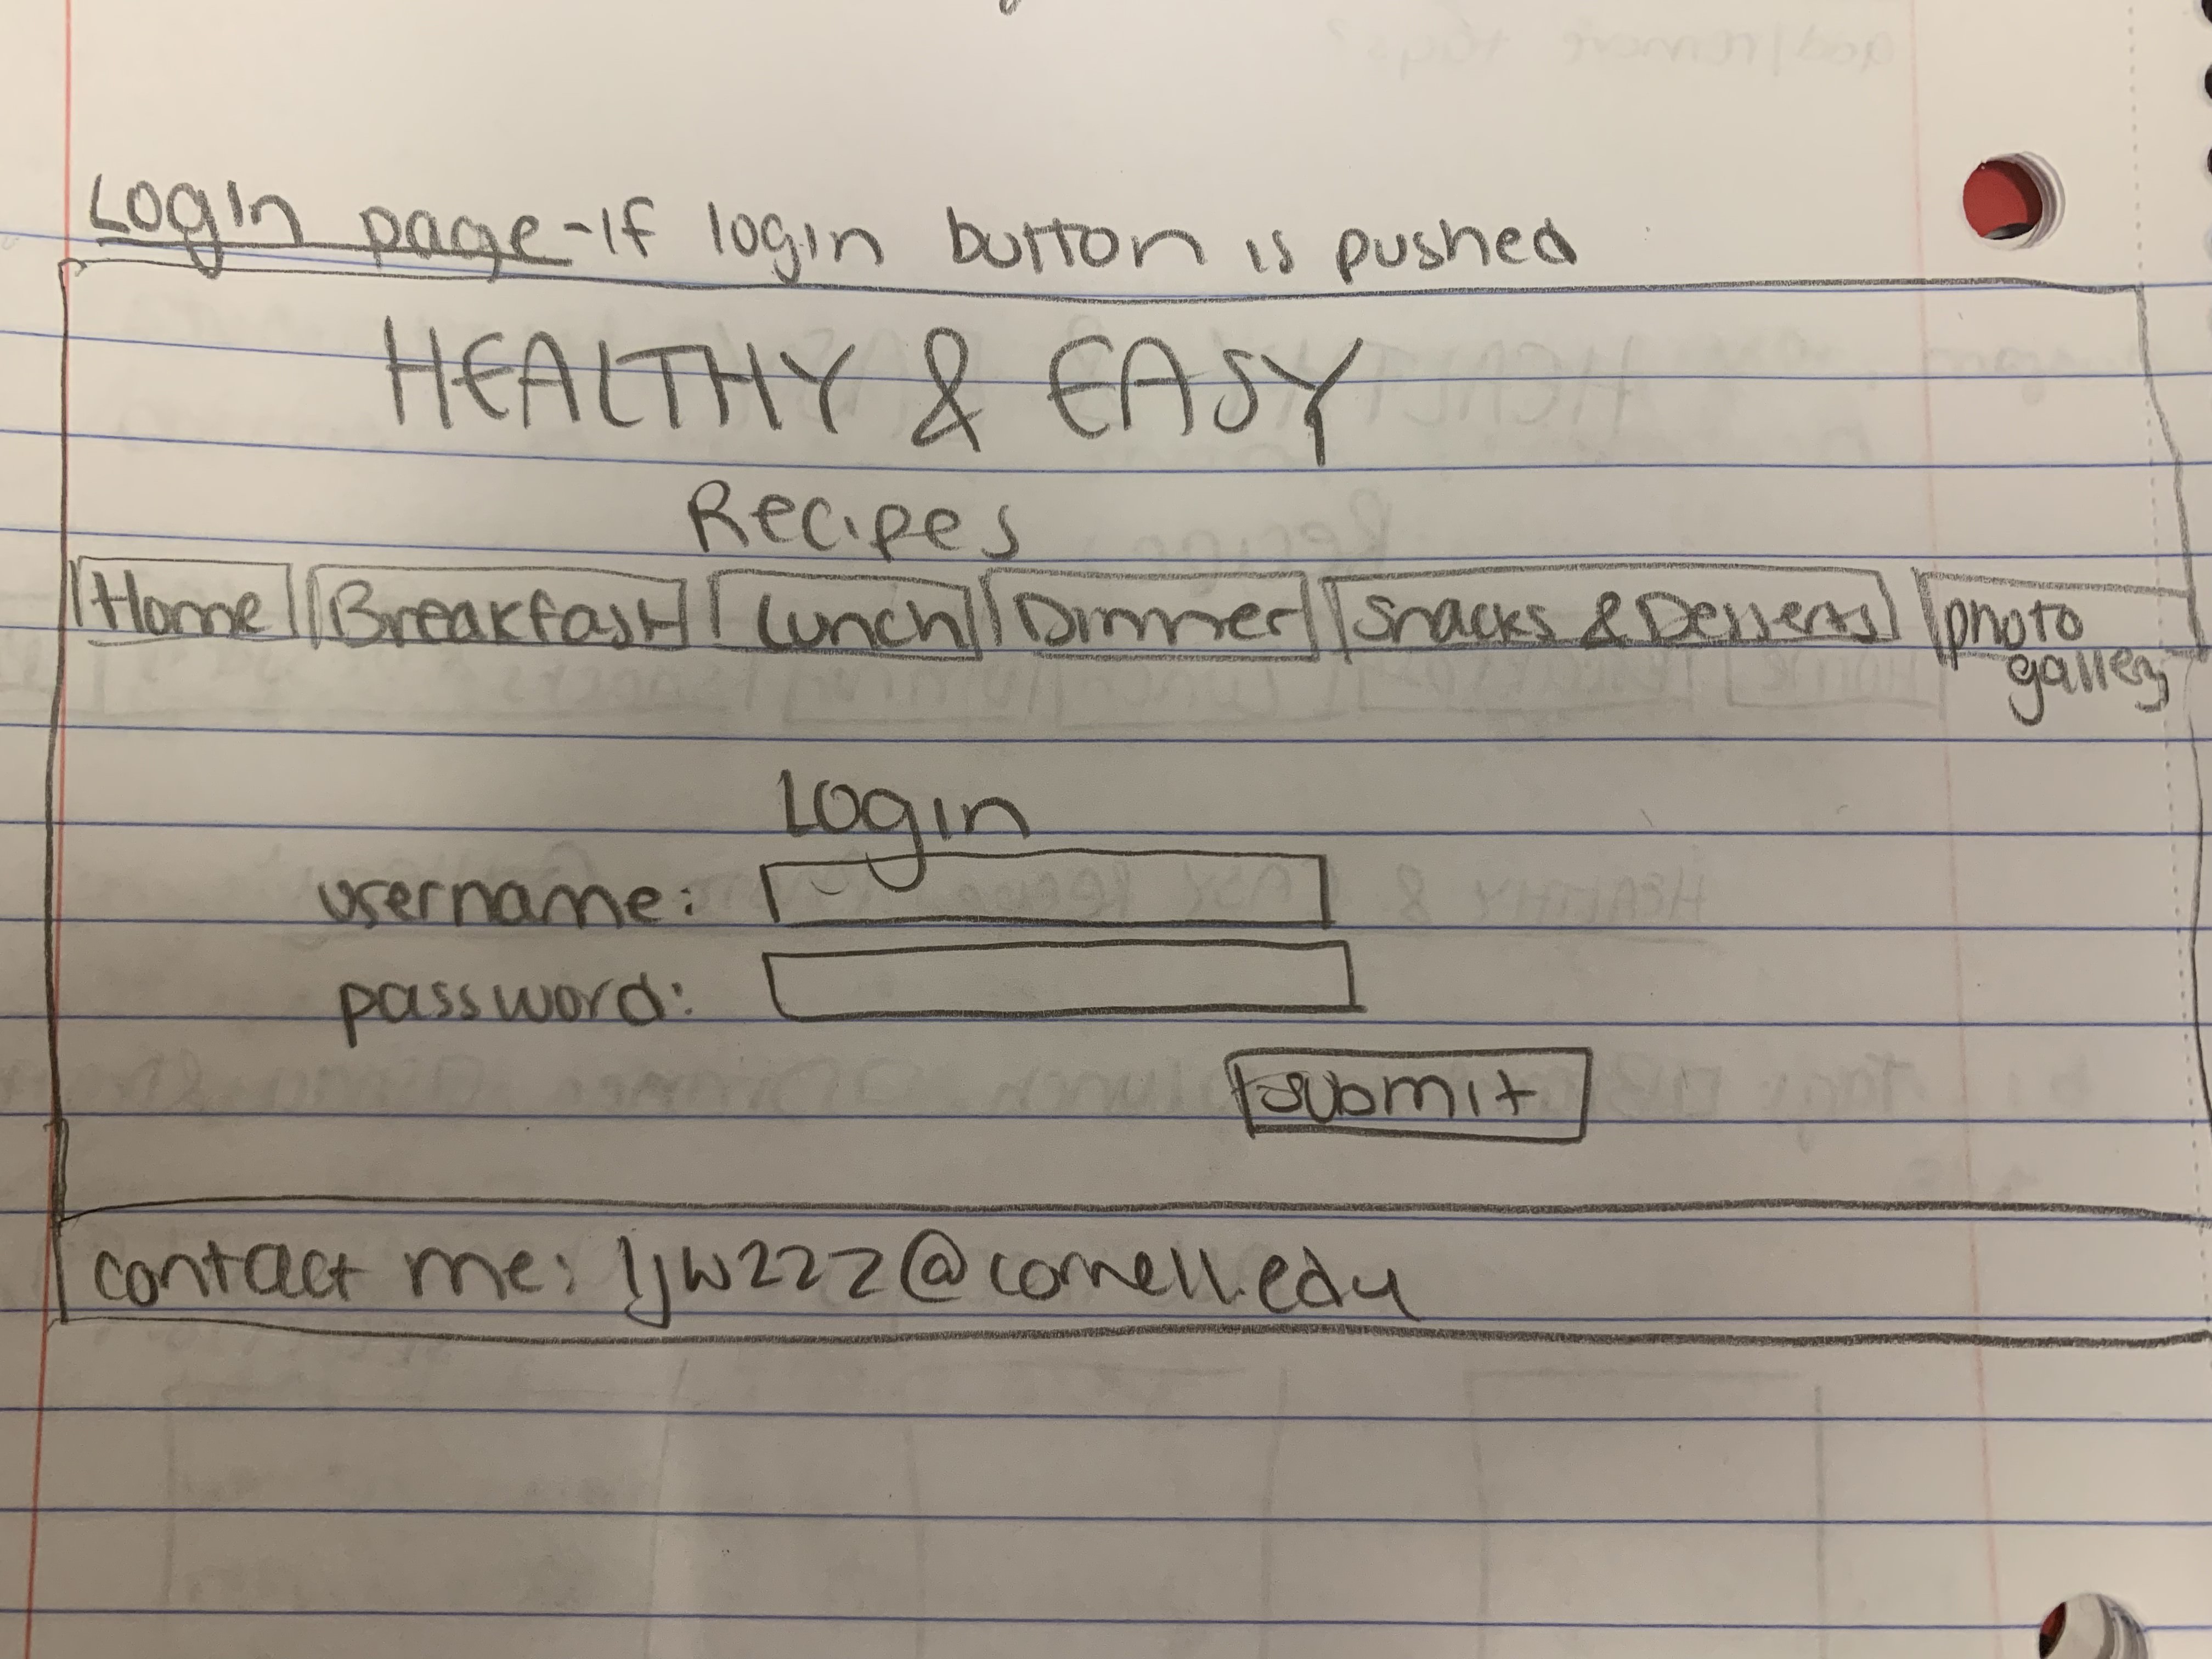 Login page-If login button is pushed
HEALTHY & EASY
Recipes
Home Breakfast Lunch Dinner Snacks & Desserts photo
gallery
Login
username:
password:
submit
contact me: ljw222@cornell.edu